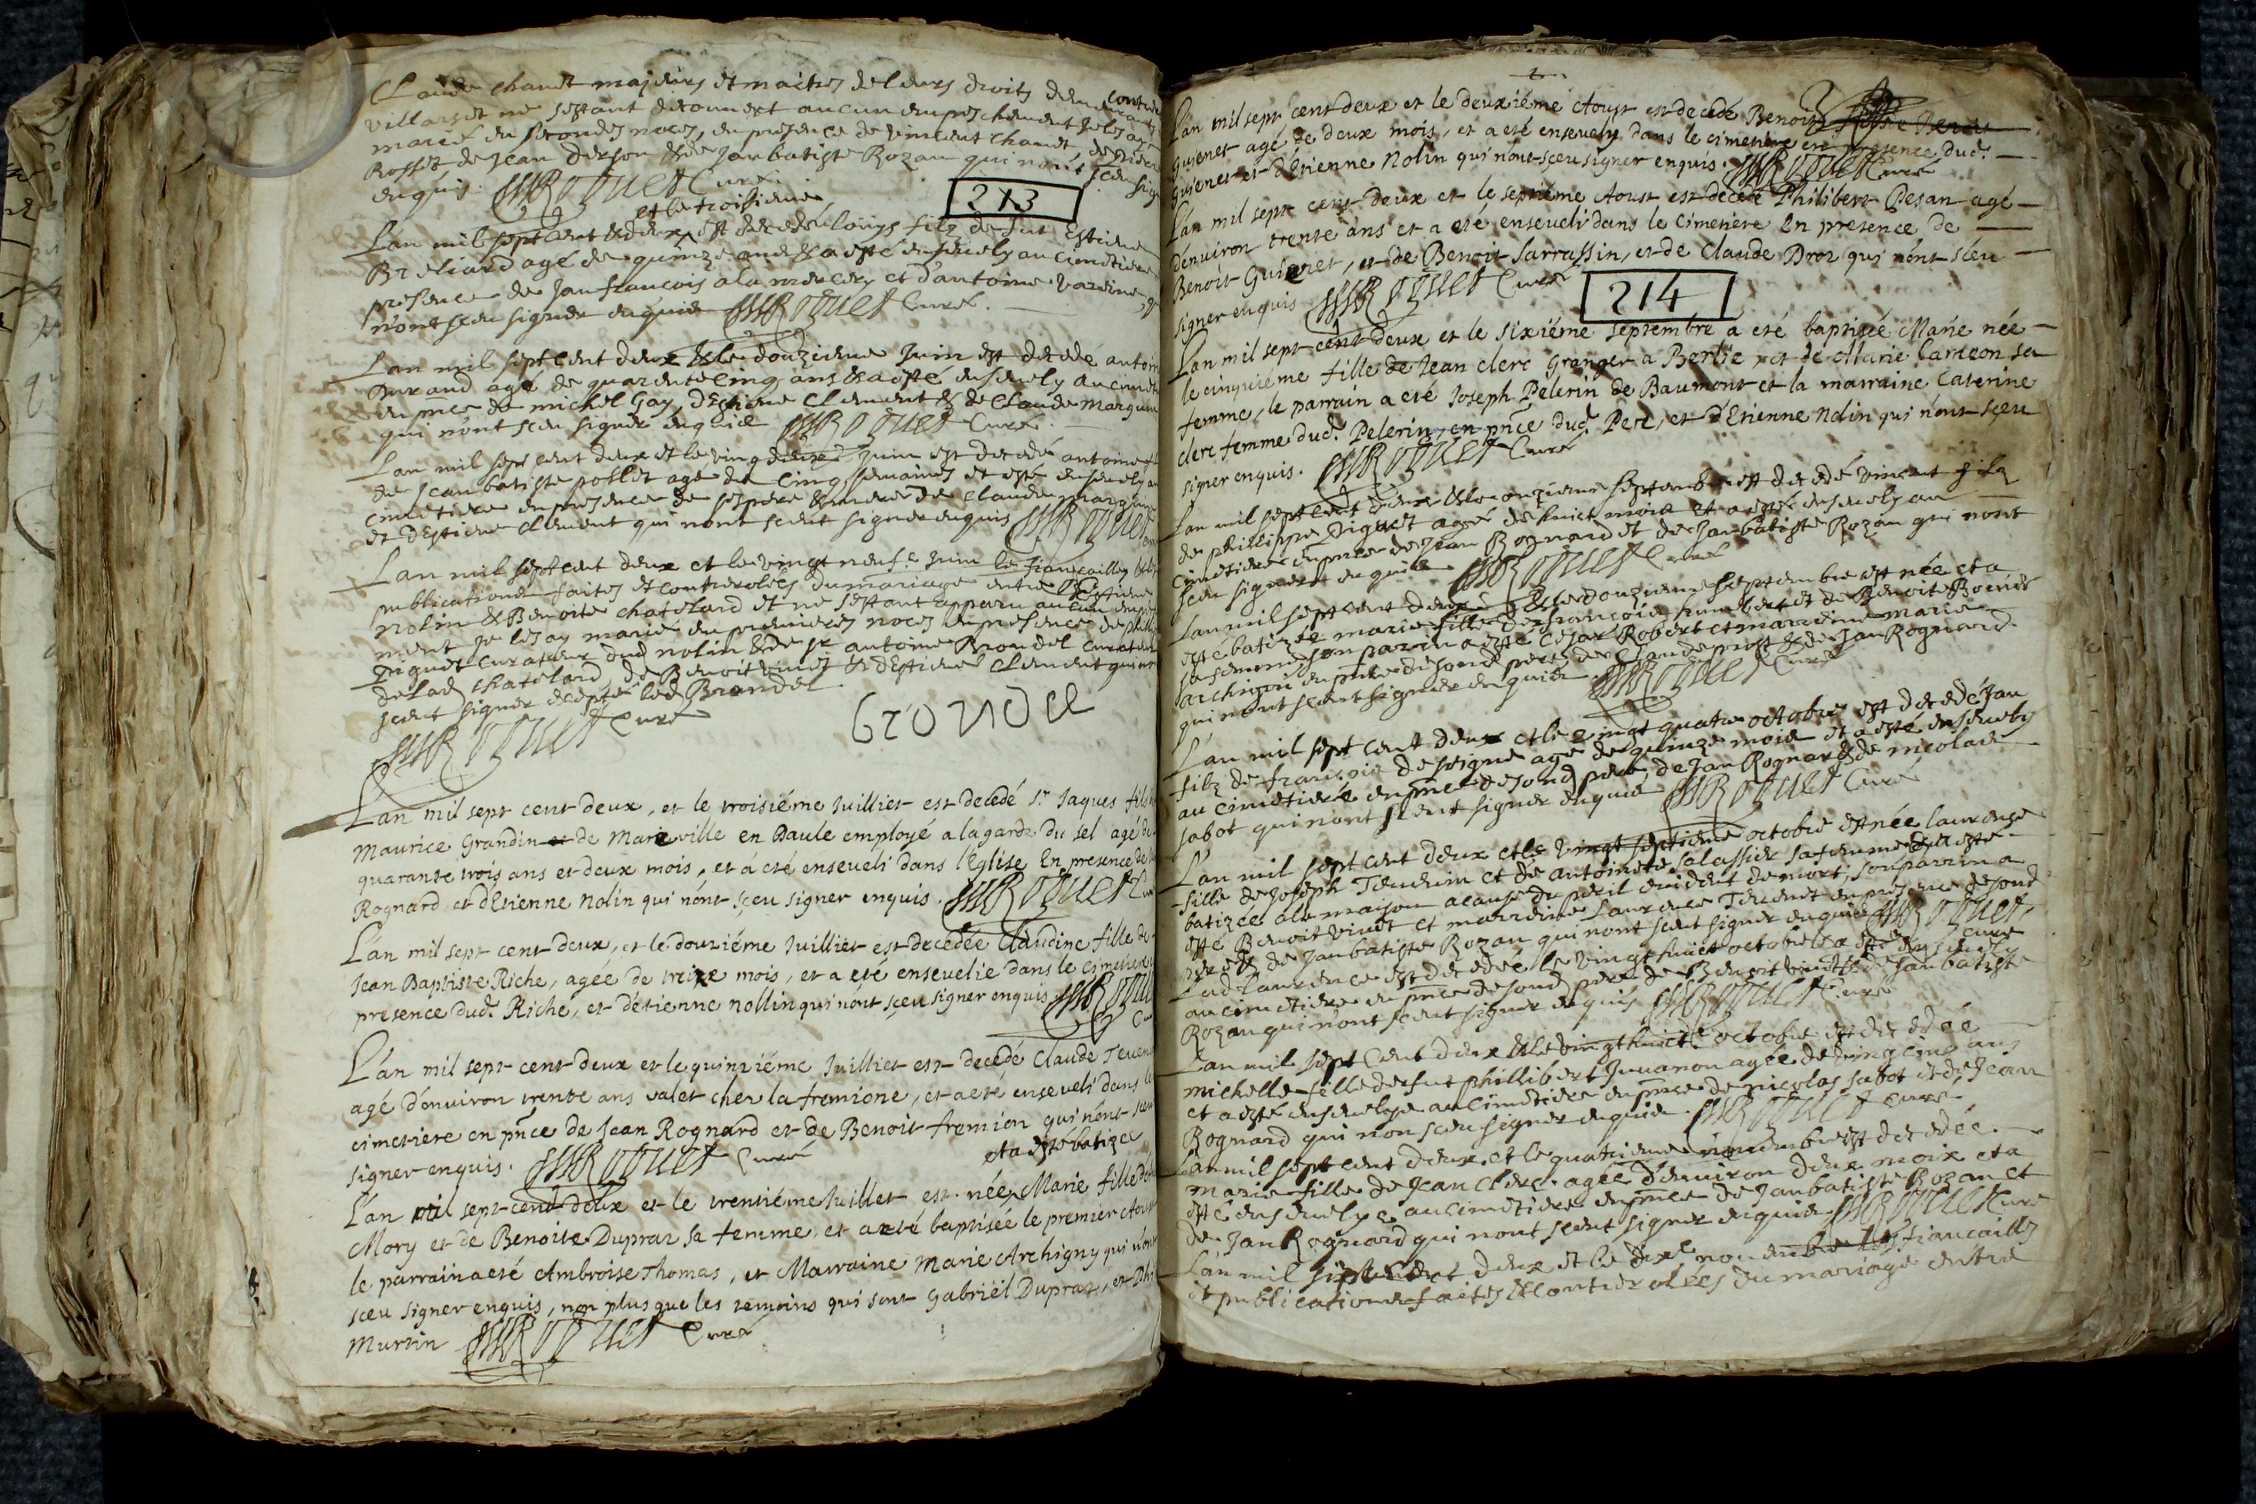 Claude chanet majeurs et maitres de leurs droits
villars et ne sestant decouvert aucun empeschement je les ay
marié en secondes noces, en presence de vincent chanet,
Rosset de Jean Derson et de Jan batiste Rozan qui nont sceu signer
enquis. Roguet Curé.
213
et le troisieme
Lan mil sept cent et deux est decedé louys filz de fut Estiene
Breliard agé de quinze ans et a esté ensevely au cimetiere
presence de Jan francois a la mercery et d'antoine vardine
n'ont sceu signer enquis Roguet Curé.
Lan mil sept cent deux et le douzieme Juin est decedé antoine
Durand agé de quarente cinq ans et a esté ensevely au cimetie
en pnce de michel Gay, d'Estiene Clement et de Claude Marguin
qui n'ont sceu signer enquis Roguet Curé.
Lan mil sept cent deux et le ving deux Juin est decedé antoine
de Jean batiste pollet agé de cinq semaines et esté ensevely au
cimetiere en presence de sespere et mere de Claude marguin
et d'Estiene Clement qui nont sceut signer enquis Roguet
Lan mil sept cent deux et le vingt neuf.e Juin les fiancailles et les
publications faites et controlees du mariage entre Estiene
nolin et Benoite chatelard et ne sestant apparu aucun empes
ment je les ay marié en premieres noces en presence de phili
Diguet curateur dud nolin et de sr antoine Brondel curateur
de lad chatelard, de Benoit vinet et d'Estiene Clement qui nont
sceut signer excepté led Brondel
Brondel
Roguet Curé
L'an mil sept cent deux, et le troisiéme Juilliet est decedé Sr. Jaques fils
Maurice Grandin de Mareville en Baule employé a la garde du sel agé de
quarante trois ans et deux mois, et á eté enseveli dans l'église En presence de
Rognard et d'Etienne Nolin qui n'ont sçeu signer enquis. Roguet Cu
L'an mil sept cent deux, et le douziéme Juilliet est decedée Claudine fille de
Jean Baptiste Riche, agée de treize mois, et a eté ensevelie dans le cimetiere
presence dud. Riche, et d'etienne nollin qui n'ont sçeu signer enquis Roguet
Cu
L'an mil sept cent deux et le quinziéme Juilliet est decedé Claude Teven
agé d'environ trente ans valet chez la fremione, et a eté enseveli dans le
cimetiere en pnce de Jean Rognard et de Benoit fremion qui n'ont sceu
signer enquis. Roguet Curé
et a esté batizee
L'an mil sept cent deux et le trentiéme Juillet est née Marie fille de
Mory et de Benoite Dupraz sa femme, et a eté baptisée le premier Aoust
le parrain a eté Ambroise Thomas, et Marraine Marie Archigny qui n'ont
sceu signer enquis, non plus que les temoins qui sont Gabriël Dupraz, et Phi
Murtin Roguet Curé
L'an mil sept cent deux et le deuxiéme Aoust est decedé Benoit
Guienet agé de deux mois, et a eté ensevely dans le cimetiere en presence dud.
Guienet et d'Etienne Nolin qui n'ont sçeu signer enquis. Roguet Curé
L'an mil sept cent deux et le septiéme Aoust est decedé Philibert Pesan agé
d'environ trente ans et a eté enseveli dans le Cimetiere En presence de
Benoit Guienet, et de Benoit Sarrassin, et de Claude Broz qui n'ont sceu
signer enquis Roguet Curé
214
L'an mil sept cent deux et le sixiéme septembre á eté baptisée Marie née
le cinquiéme fille de Jean Clerc Granger a Berlie et de Marie Cardon sa
femme, le parrain a eté Joseph Pelerin de Baumont et la marraine Caterine
clerc femme dud. Pelerin, en pnce dud. Pere, et d'Etienne Nolin qui n'ont sçeu
signer enquis. Roguet Curé
Lan mil sept cent deux et le onzieme septembre est decedé vincent filz
de phillippe Diguet aagé de huict mois et a esté ensevely au
cimetiere en pnce de Jean Rognard et de Jan batiste Rozan qui nont
sceu signer enquis Roguet Curé
Lan mil sept cent deux et le douzieme septembre est née et a
esté batizee marie fille de francois humbert et de Benoite Bocuié
sa femme son parrin a esté Cesar Robert et marreine marie
archigni en pnce de sond pere de Claude prost et de Jan Rognard
qui n'ont sceut signer enquis. Roguet Curé
Lan mil sept cent deux et le vingt quatre octobre est decedé Jan
filz de francois de seigne agé de quinze mois et a esté ensevely
au cimetiere en pnce de sond pere, de Jan Rognard et de nicolas
sabot qui nont sceut signer enquis Roguet Curé
Lan mil sept cent deux et le vingt septieme octobre est née laurence
fille de Joseph Tenduin et de antoinete salassier sa femme et a esté
batizee a la maison a cause du peril evident de mort, son parrin a
esté Benoit vinet et marreine laurence Tevenet en presence de sond
pere et de Jan batiste Rozan qui nont sceut signer enquis Roguet,
curé
Lad laurence est decedee le vingt huict octobre et a esté ensevely
au cimetiere en pnce de sond pere de Benoit vinet et de Jan batiste
Rozan qui nont sceut signer enquis Roguet Curé
Lan mil sept cent deux et le vingt huict octobre est decedée
michelle fille de fut phillibert Juvanon agée de vingt cinq ans
et a esté ensevelye au cimetiere en pnce de nicolas sabot et de Jean
Rognard qui non sceu signer enquis. Roguet curé
Lan mil sept cent deux et le quatrieme novembre est decedée
marie fille de Jean Clerc agée d'environ deux mois et a
esté ensevelye au cimetiere en pnce de Jan batiste Rozan et
de Jan Rognard qui nont sceut signer enquis Roguet Curé
Lan mil sept cent deux et le dix.e novembre les fiancailles
et publications faites et controlees du mariage entre